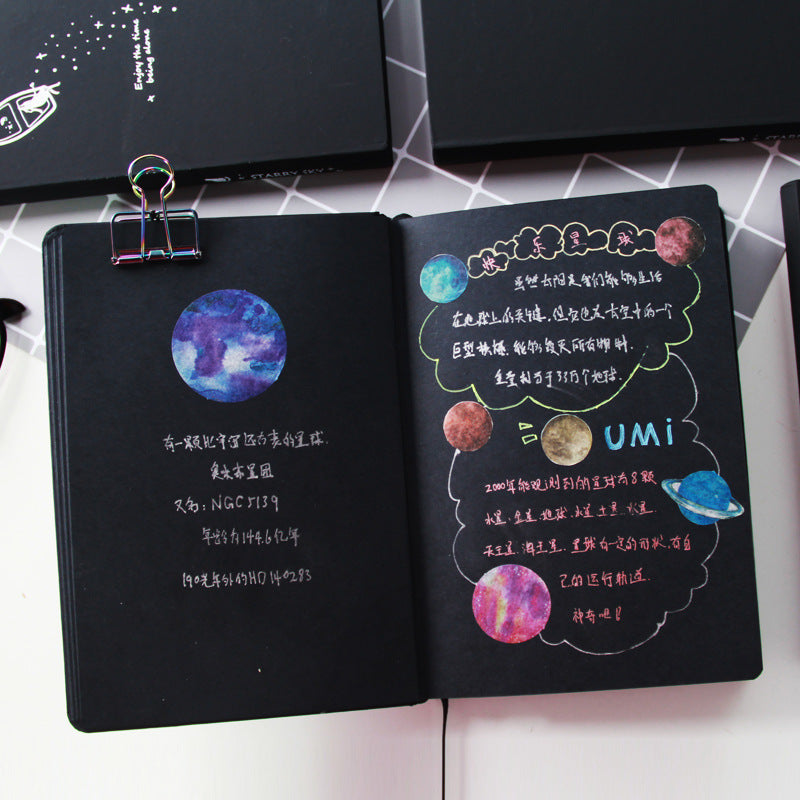 Enjoy the time
being alone
STARRY SKY
STARRY SKY
有一颗比宇宙还古老的星球
星团
又名：NGC5139
年龄为144.6亿年
190光年外的HD140283
快乐星球
虽然太阳是我们能够生活
在地球上的关键，但它也是太空中的一个
巨型核爆，能够毁灭所有物
万个地球.
UMi
2000年能观测到的星球有8颗
水星、金星、地球、火星、土星、木星
天王星、海王星，星球有一定的形状，有自
己的运行轨道.
神奇吧！